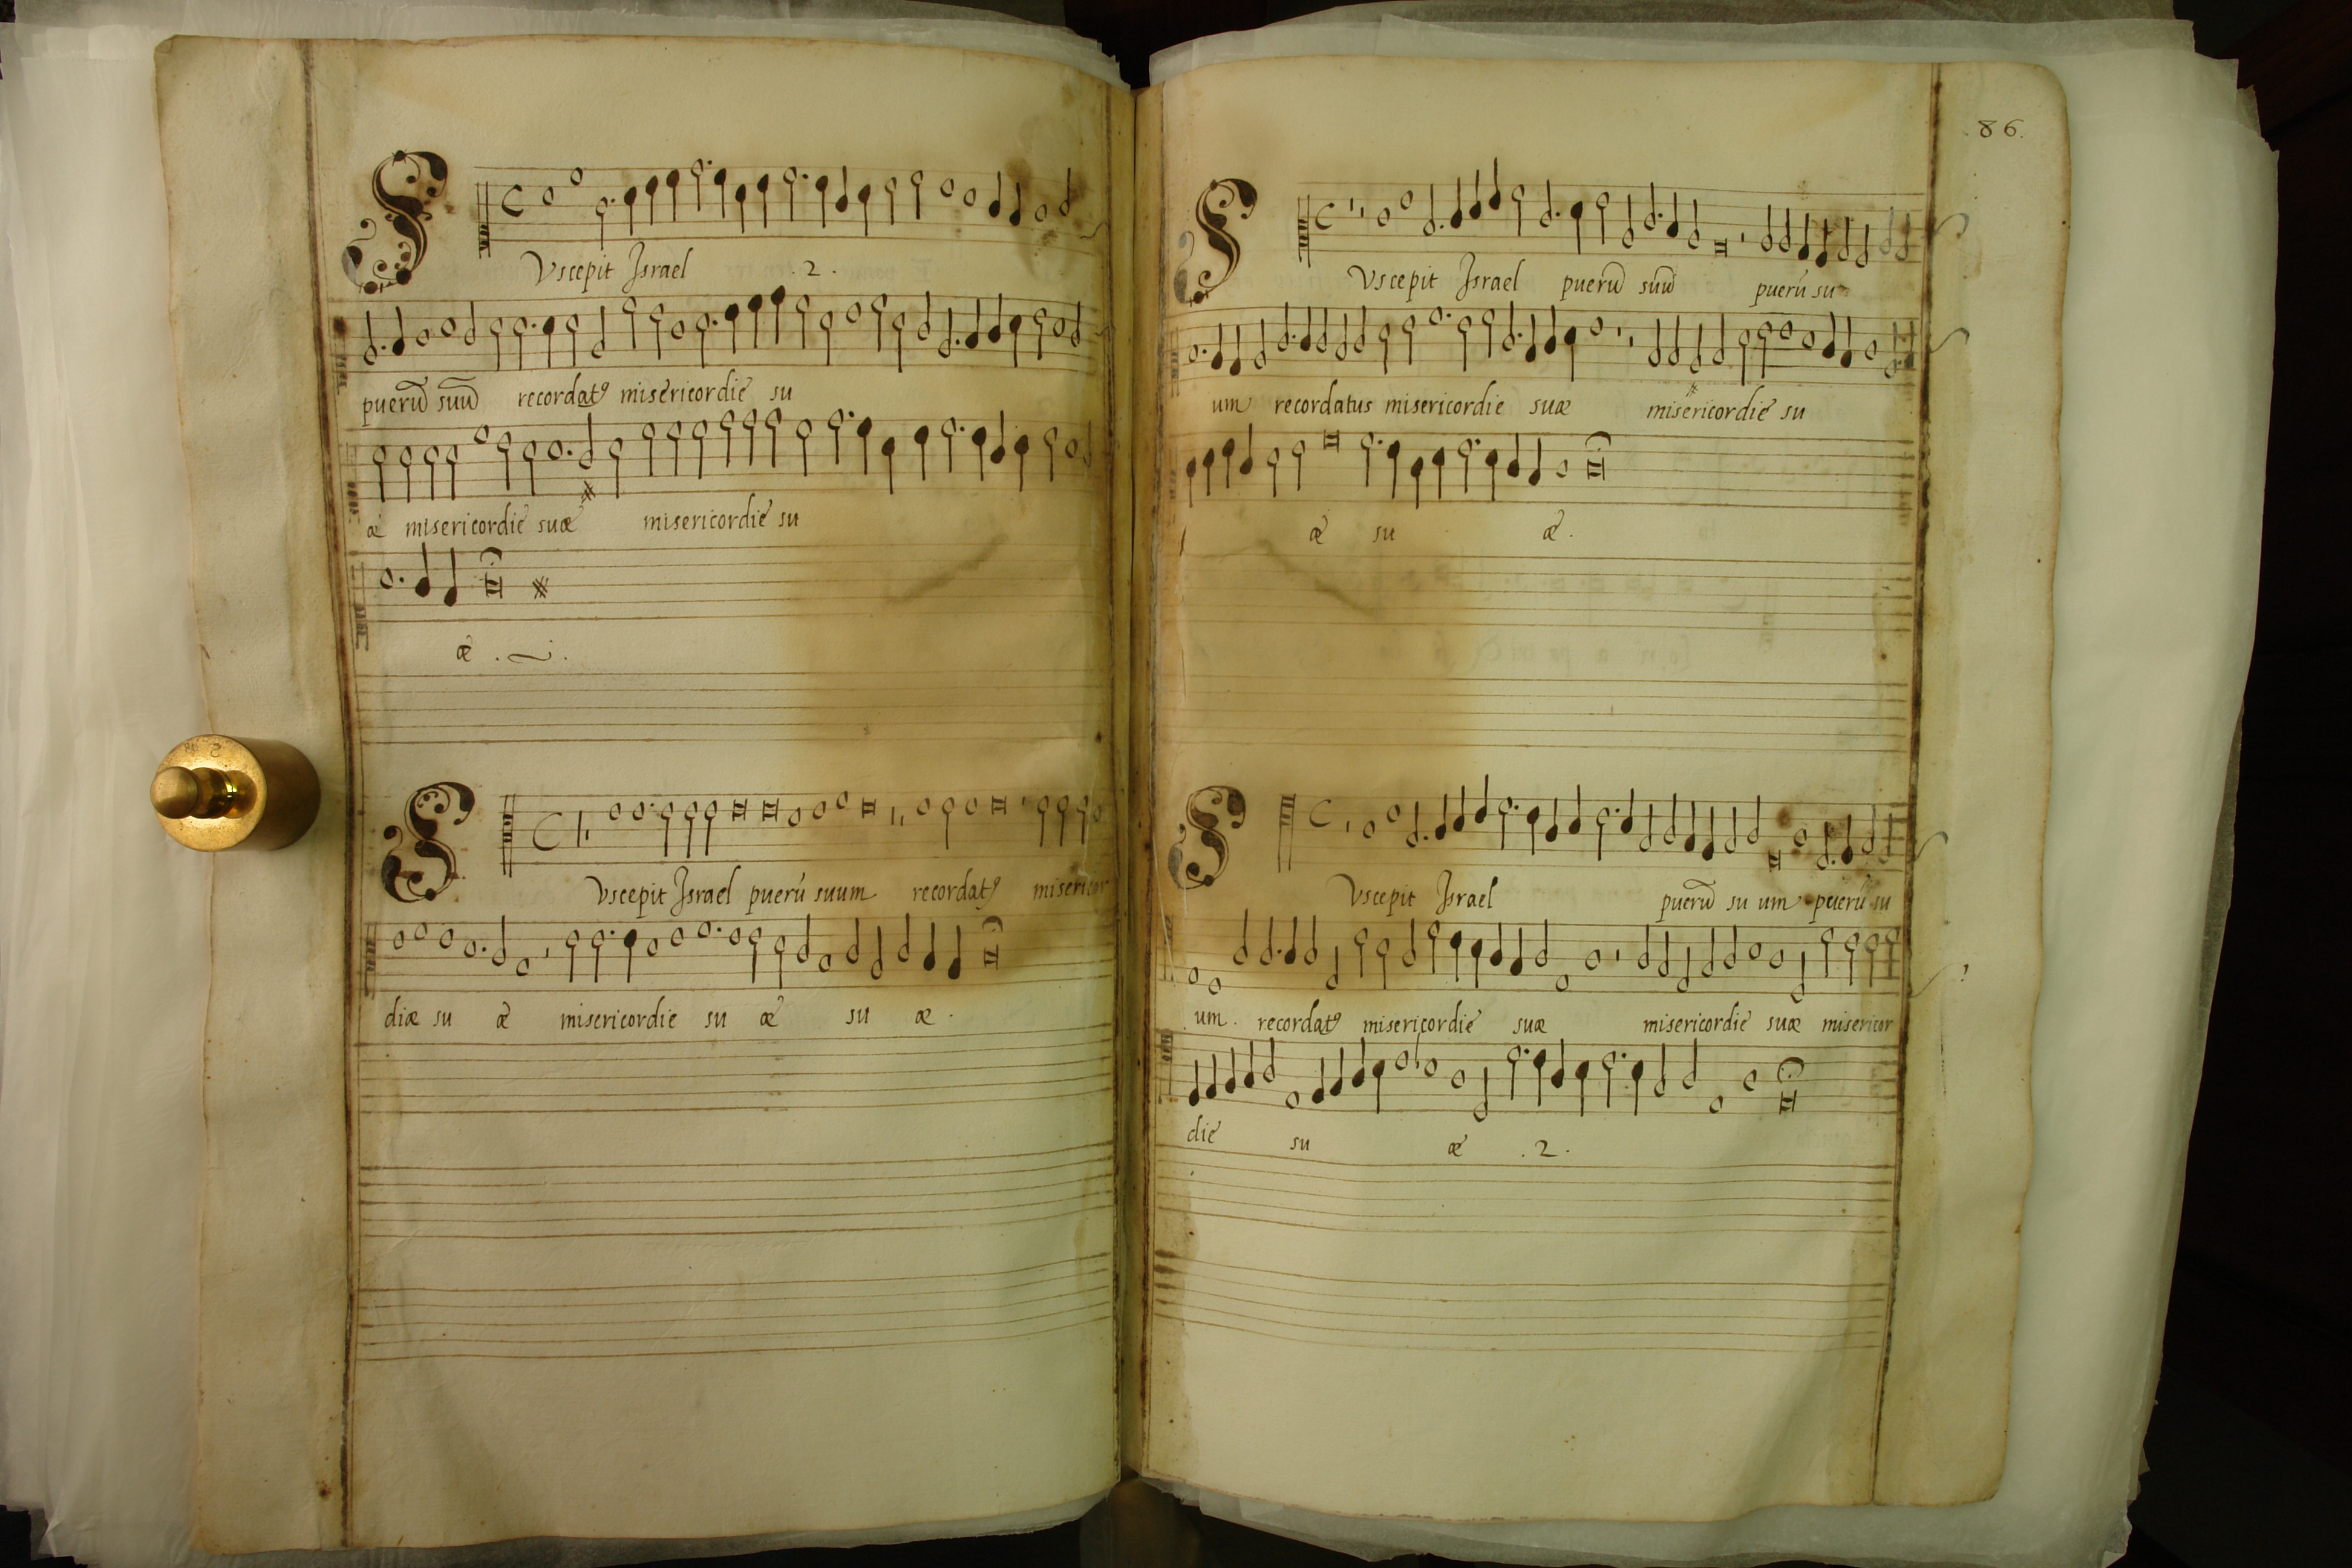 SVscepit Israel .2.
puerū suū recordatꝰ misericordie su
æ misericordie suæ misericordie su
æ .
SVscepit Israel puerū suum recordatꝰ misericor
diæ su æ misericordie su æ su æ .
86.
SVscepit Israel puerū suū puerū su
um recordatus misericordie suæ misericordie su
æ su æ .
SVscepit Israel puerū su um puerū su
um . recordatꝰ misericordie suæ misericordie suæ misericor
die su æ .2.